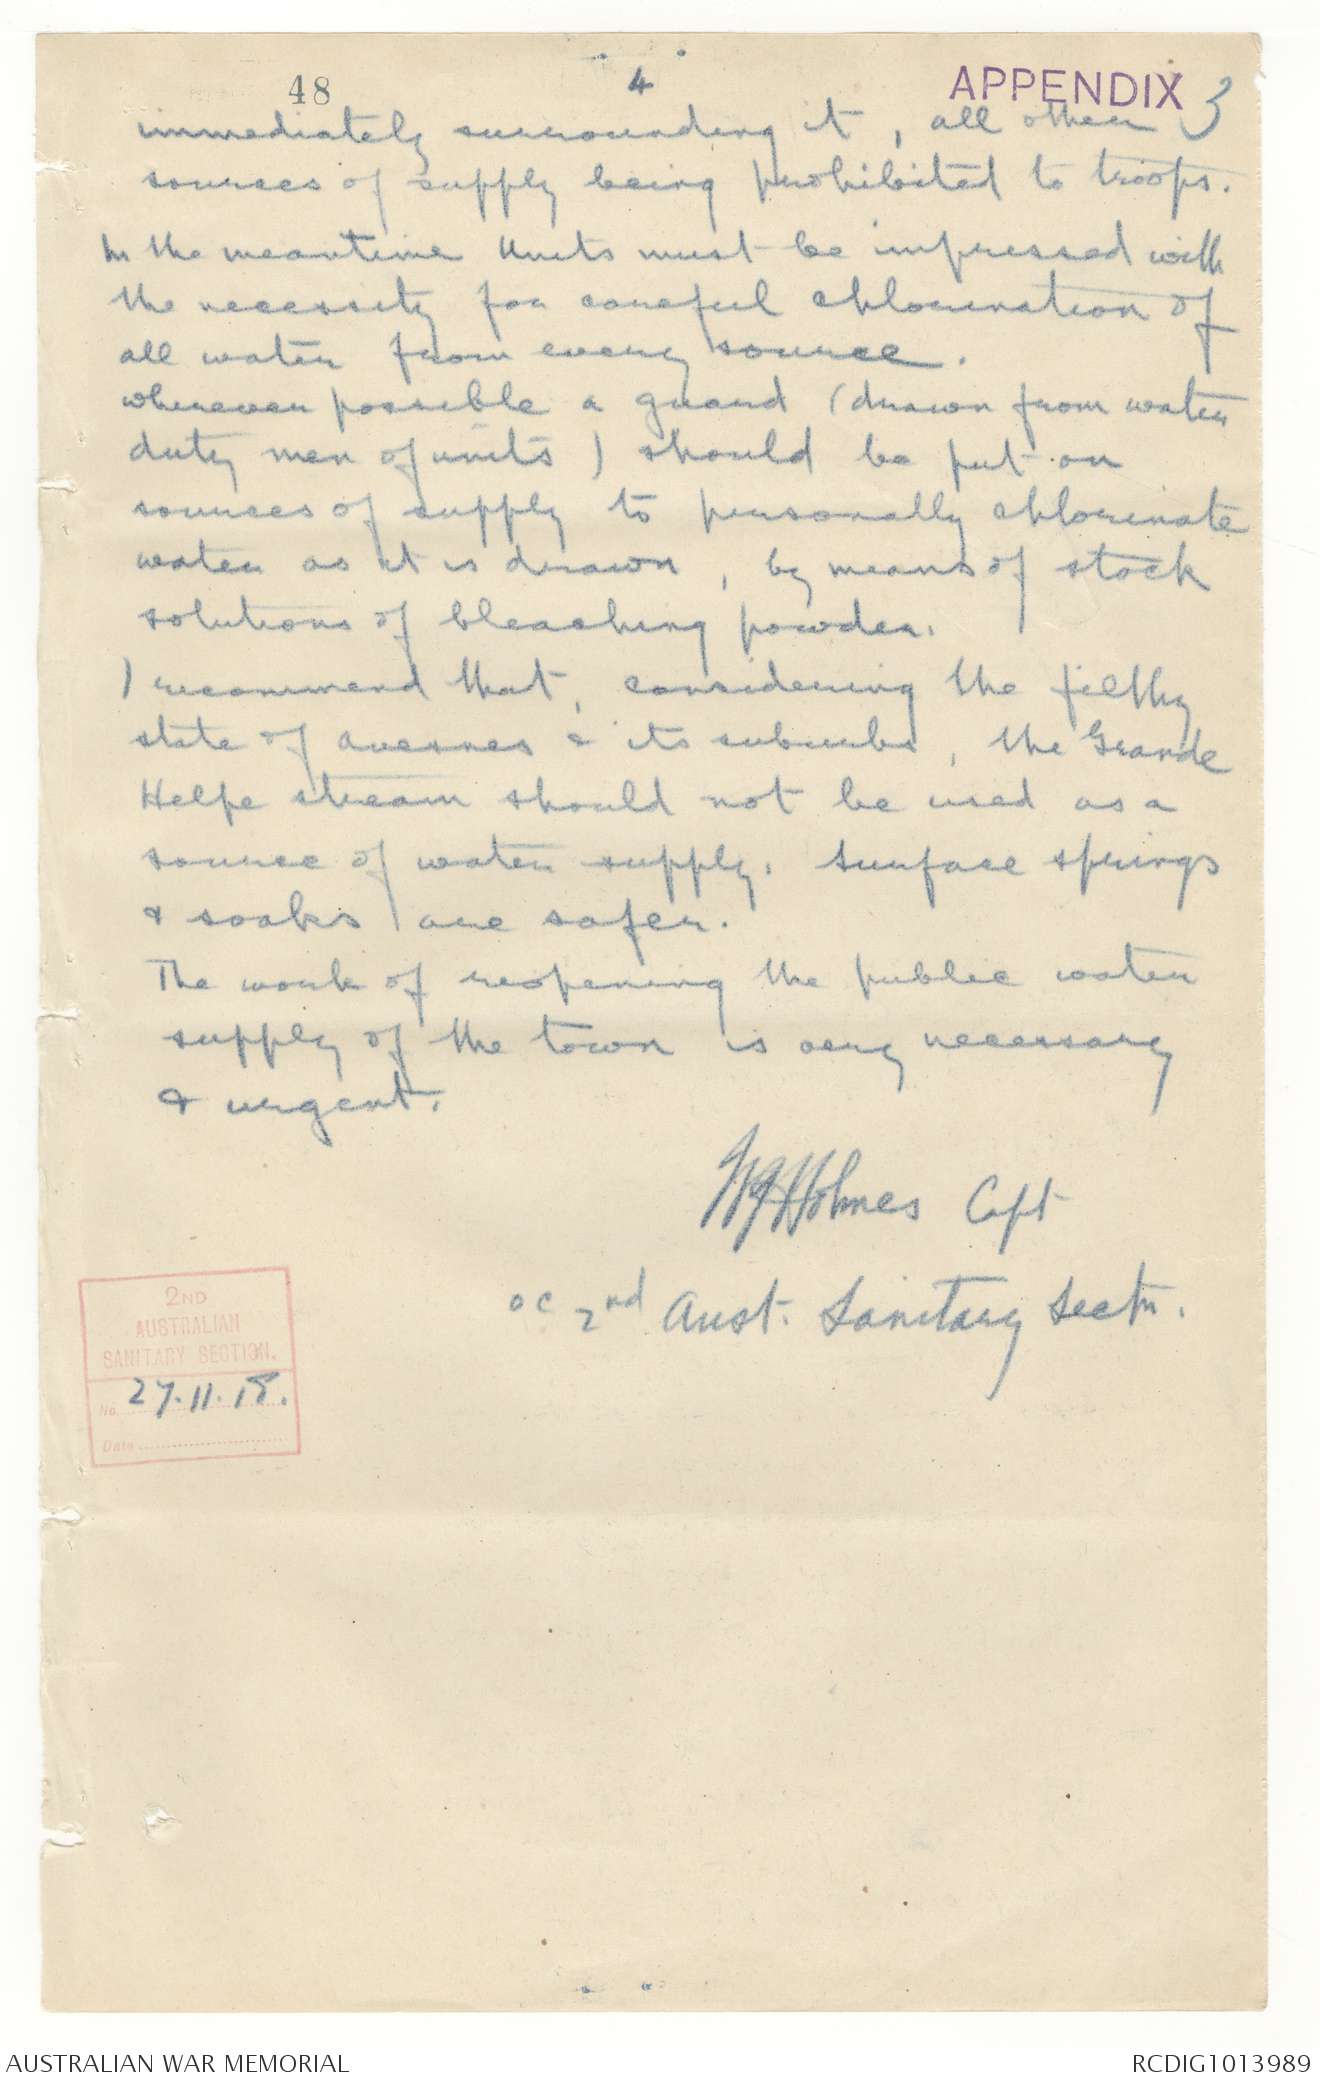 48
4
APPENDIX 3
immediately surrounding it, all other
sources of supply being prohibited to troops.
In the meantime Units must be impressed with
the necessity for careful chlorination of
all water from every source.
wherever possible a guard (drawn from water
duty men of units) should be put on
sources of supply to personally chlorinate
water as it is drawn, by means of stock
solutions of bleaching powder.
I recommend that, considering the filthy
state of Avesnes & its suburbs, the Grande
Helpe stream should not be used as a
source of water supply. Surface springs
& soaks are safer.
The work of reopening the public water
supply of the town is very necessary
& urgent.
Holmes Capt
OC 2nd Aust. Sanitary Sectn.
2ND
AUSTRALIAN
SANITARY SECTION.
No. 27.11.18.
Date
AUSTRALIAN WAR MEMORIAL
RCDIG1013989